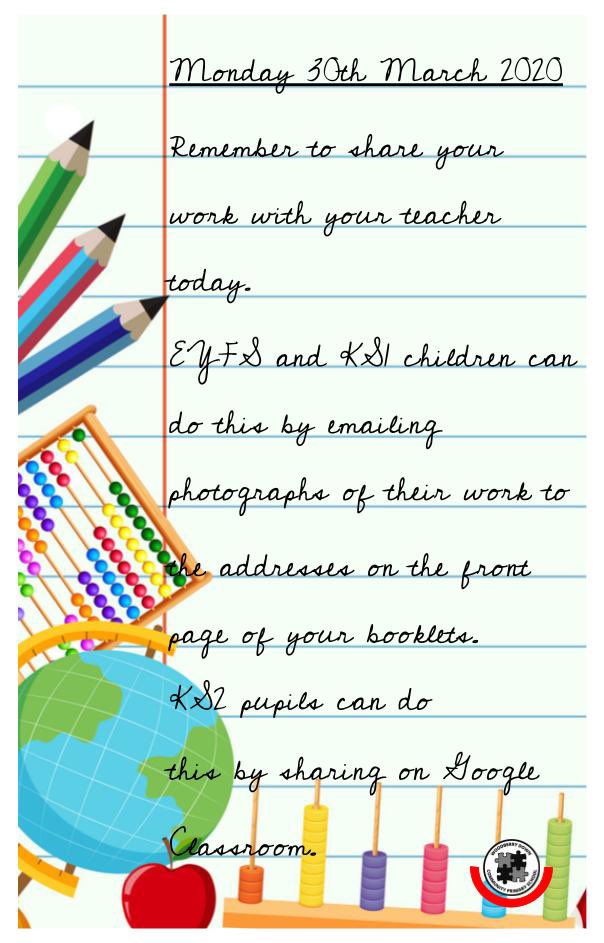 Monday 30th March 2020
Remember to share your
work with your teacher
today.
EYFS and KS1 children can
do this by emailing
photographs of their work to
the addresses on the front
page of your booklets.
KS2 pupils can do
this by sharing on Google
Classroom.
WOODBERRY DOWN
COMMUNITY PRIMARY SCHOOL